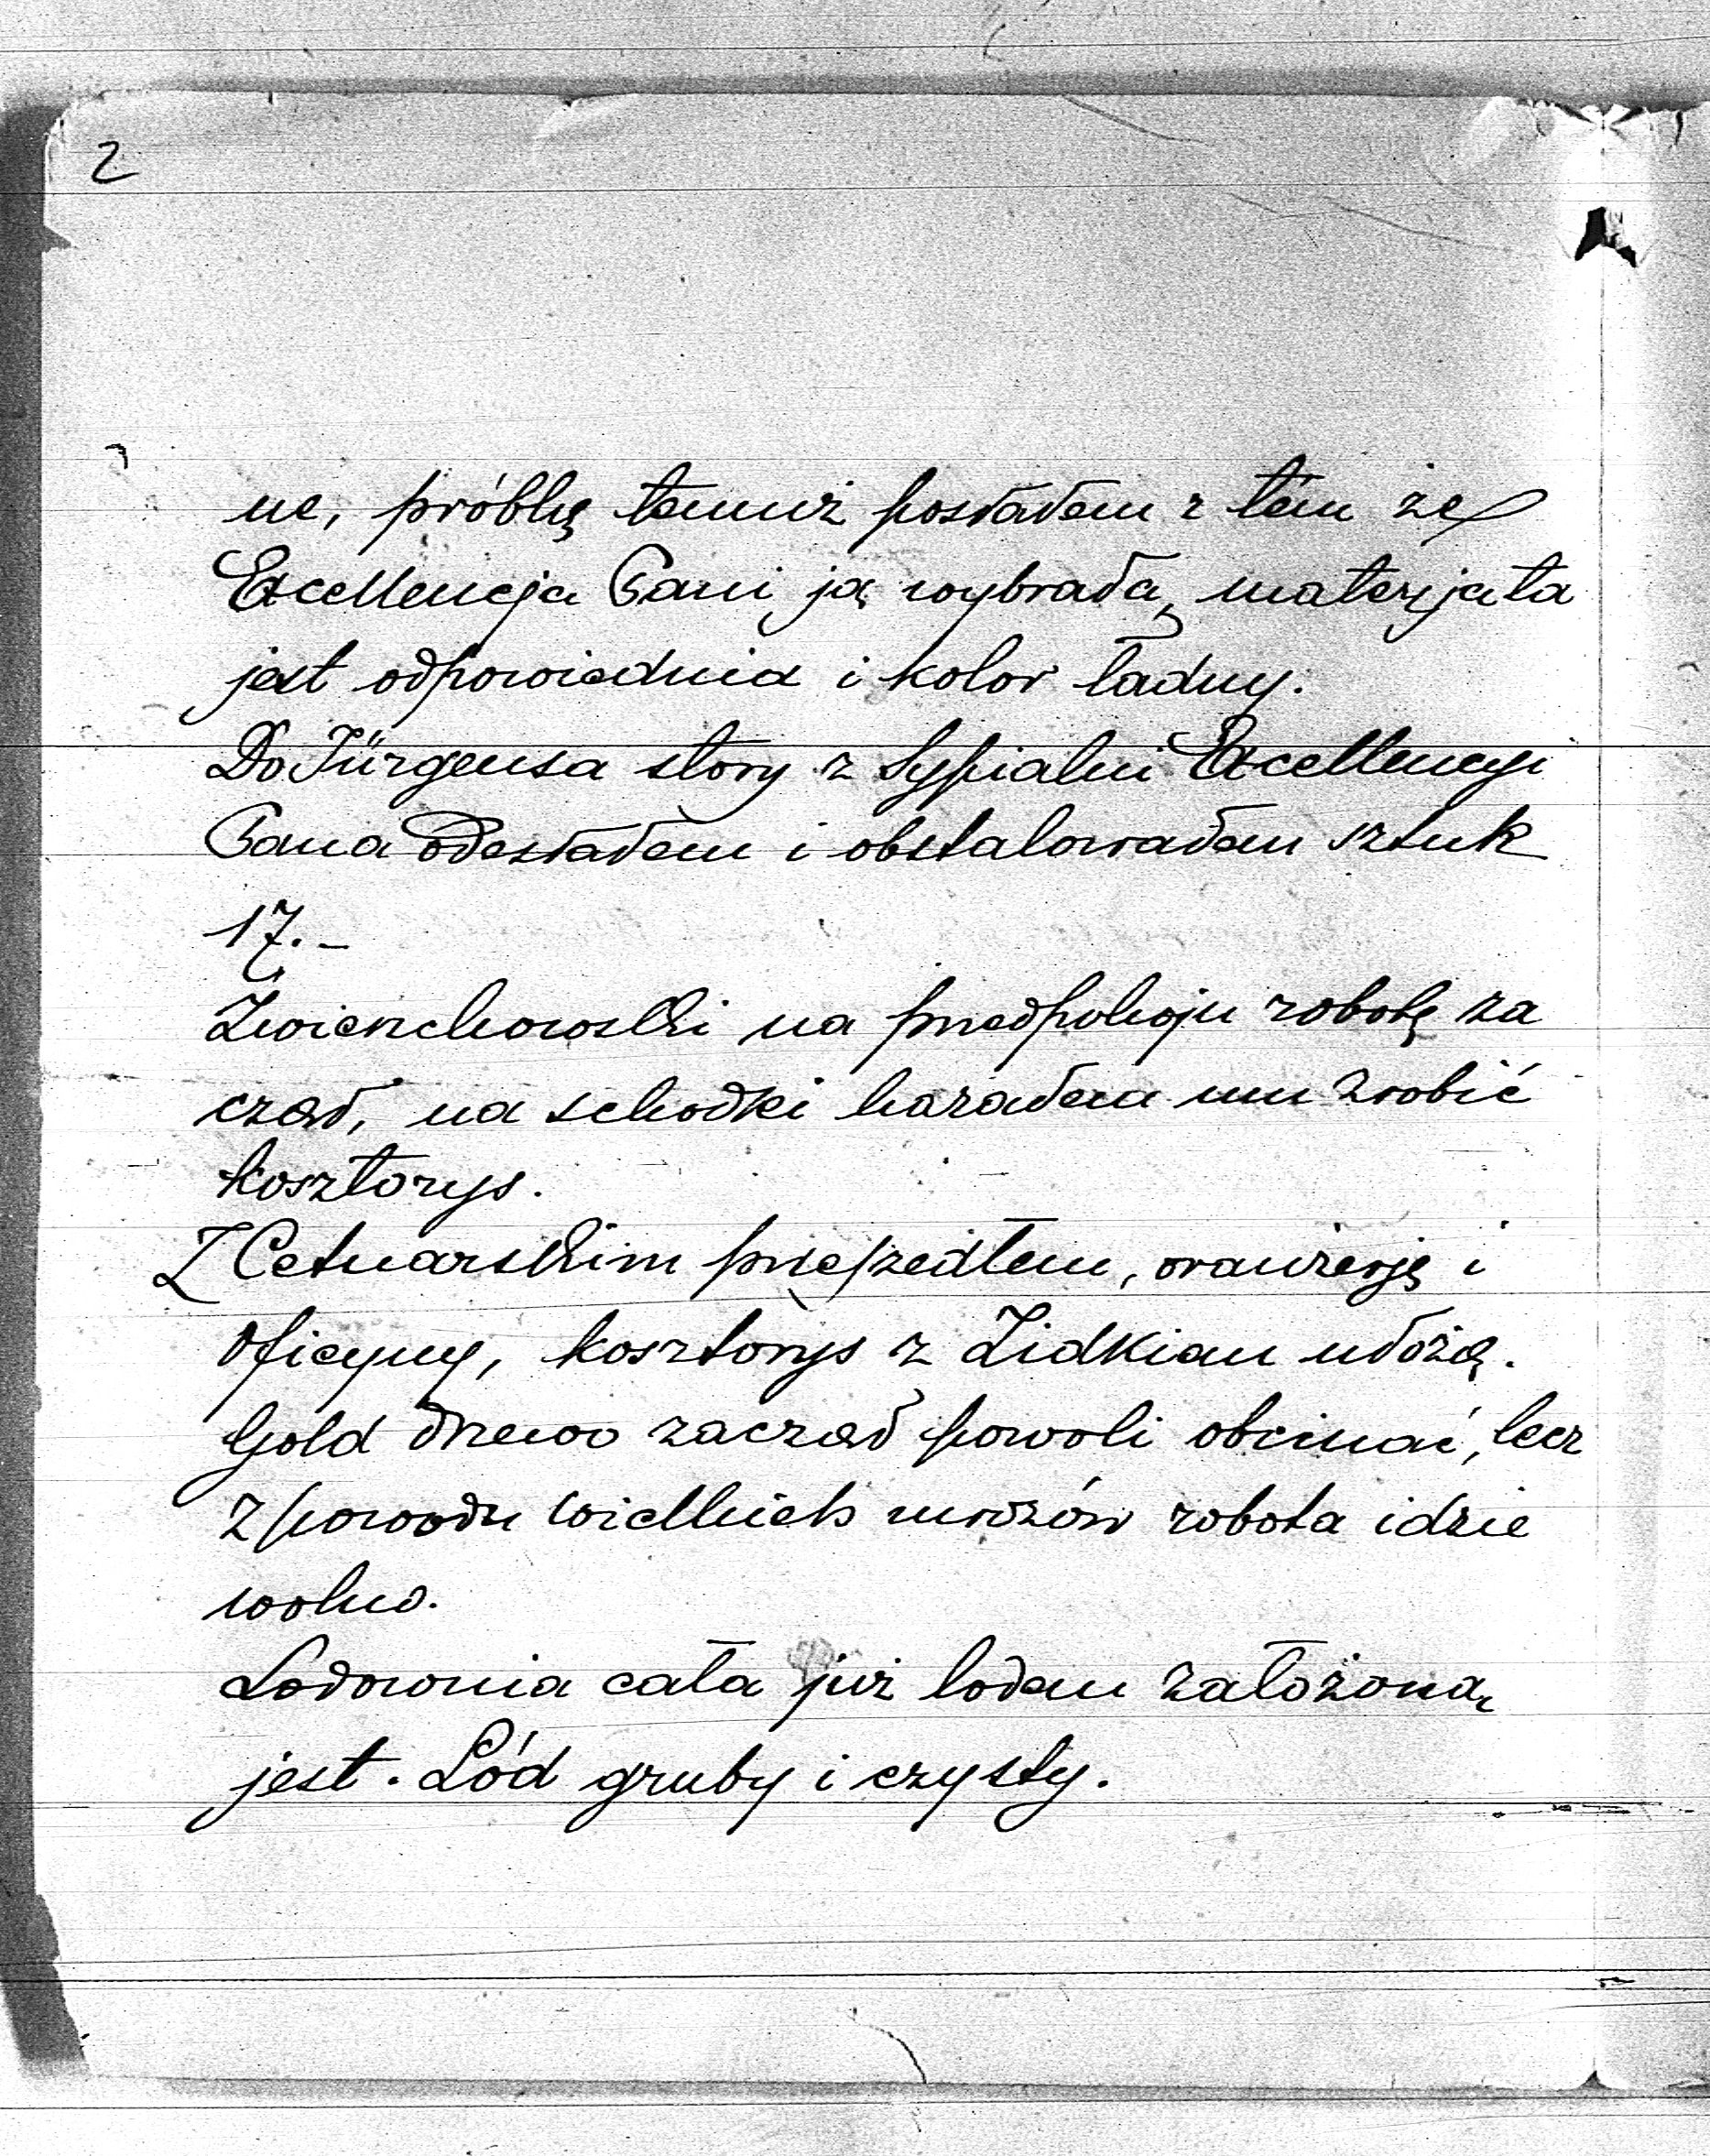 2
ne, próbkę temuż posłałem z tém że
Excellencja Pani ją wybrała, materyja ta
jest odpowiednia i kolor ładny.
Do Jürgensa story z Sypialni Excellencyi
Pana odesłałem i obstalowałem sztuk
17.-
na przedpokoju robotę za
czął, na schodki kazałem mu zrobić
kosztorys.
Z Cetnarskim przeszedłem, oranżerję i
Oficyny, kosztorys z Zidkiem ułożą.
Gold drzewo zaczął powoli obcinać, lecz
z powodu wielkich mrozów robota idzie
wolno.
Lodownia cała już lodem założoną
jest. Lód gruby i czysty.